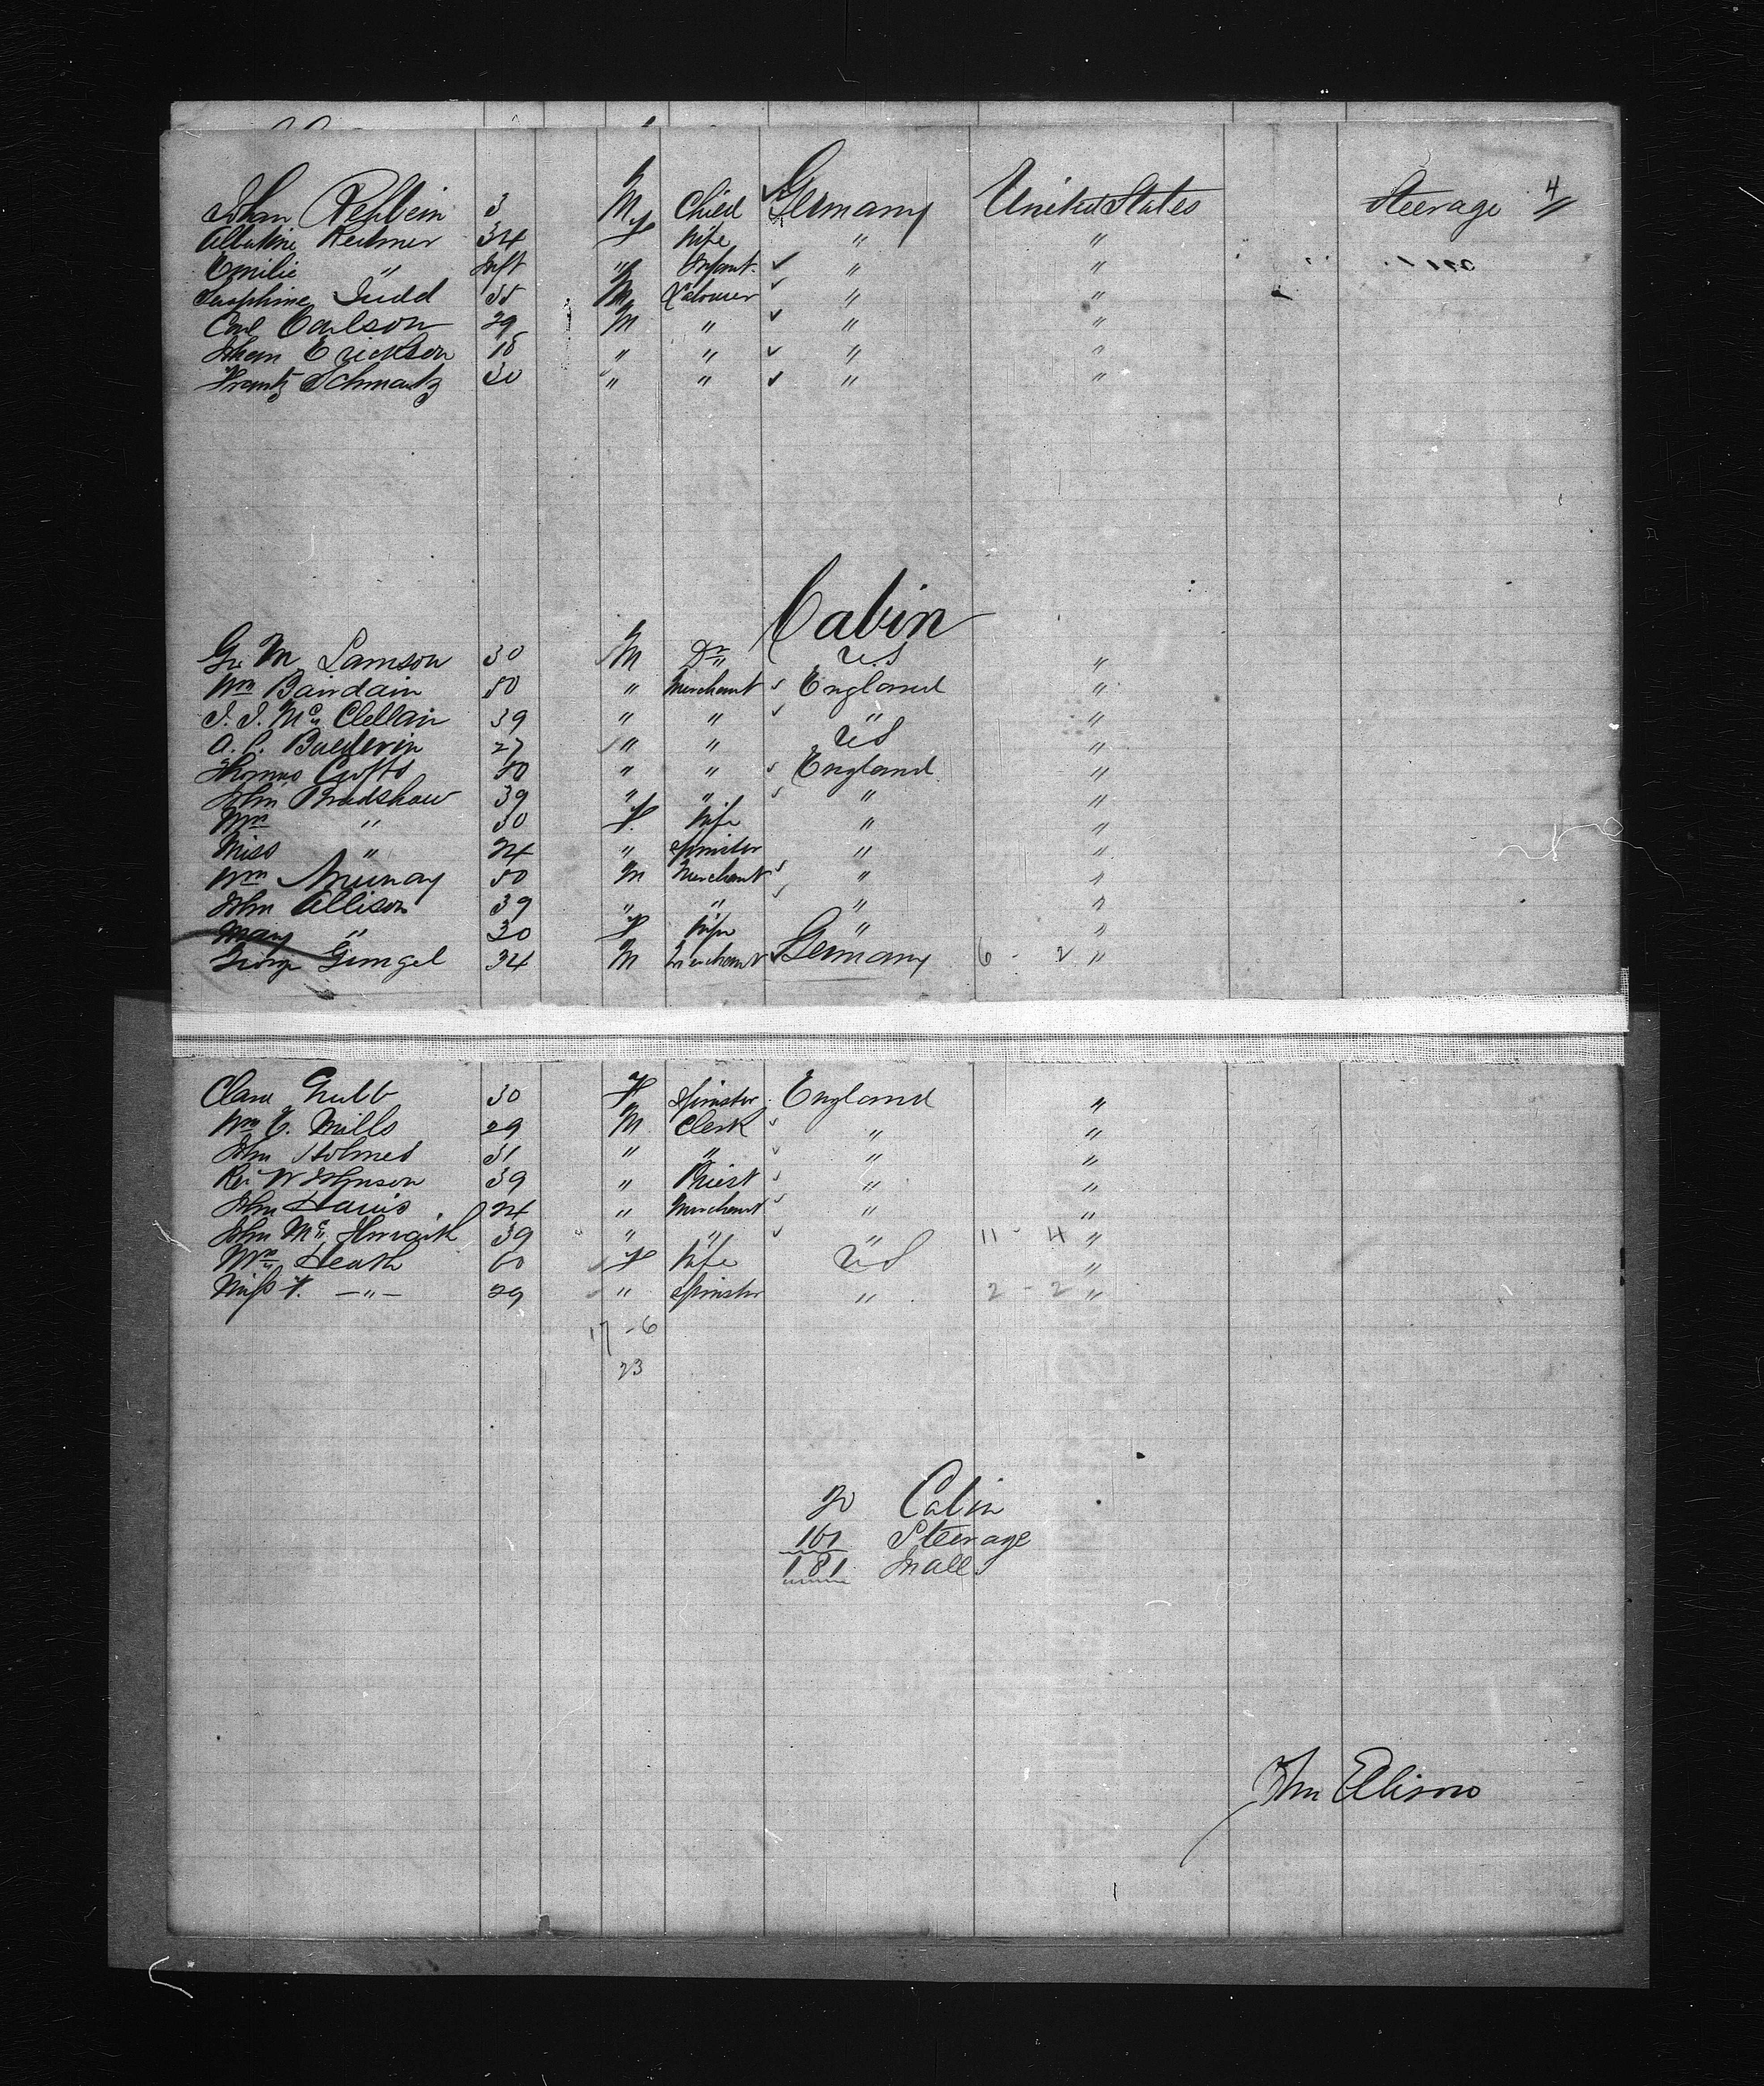 4
Johan Rehbein 3 M Child Germany United States Steerage
Albertine Reitmer 34 F Wife " "
Emilie " Inft " Infant " "
Josephine Judd 35 M Labourer " "
Carl Carlson 29 M " " "
Johan Erickson 18 " " " "
Frantz Schmantz 30 " " " "
Cabin
G. M. Lamson 30 M Dr U.S "
Wm Bairdain 50 " Merchant England "
J. J. Mc Clellan 39 " " " "
A. C. Baldwin 27 " " US "
Thomas Crofts 50 " " England "
John Bradshaw 39 " " " "
Mrs " 30 F. Wife " "
Miss " 24 " Spinster " "
Wm Murray 50 M Merchant " "
John Allison 39 " " " "
Mary " 30 F Wife " "
George Gimgel 34 M Merchant Germany 6 - 2 "
Clara Grubb 30 F Spinster England "
Wm C. Mills 29 M Clerk " "
John Holmes 31 " " " "
Rev W Johnson 39 " Priest " "
John Davis 24 " Merchant " "
John Mc 39 " " " 11 - 4 "
Mrs Heath 60 F Wife US "
Miss F. -"- 29 " Spinster " 2 - 2 "
17 - 6
23
20 Cabin
161 Steerage
181 In all
John Ellison